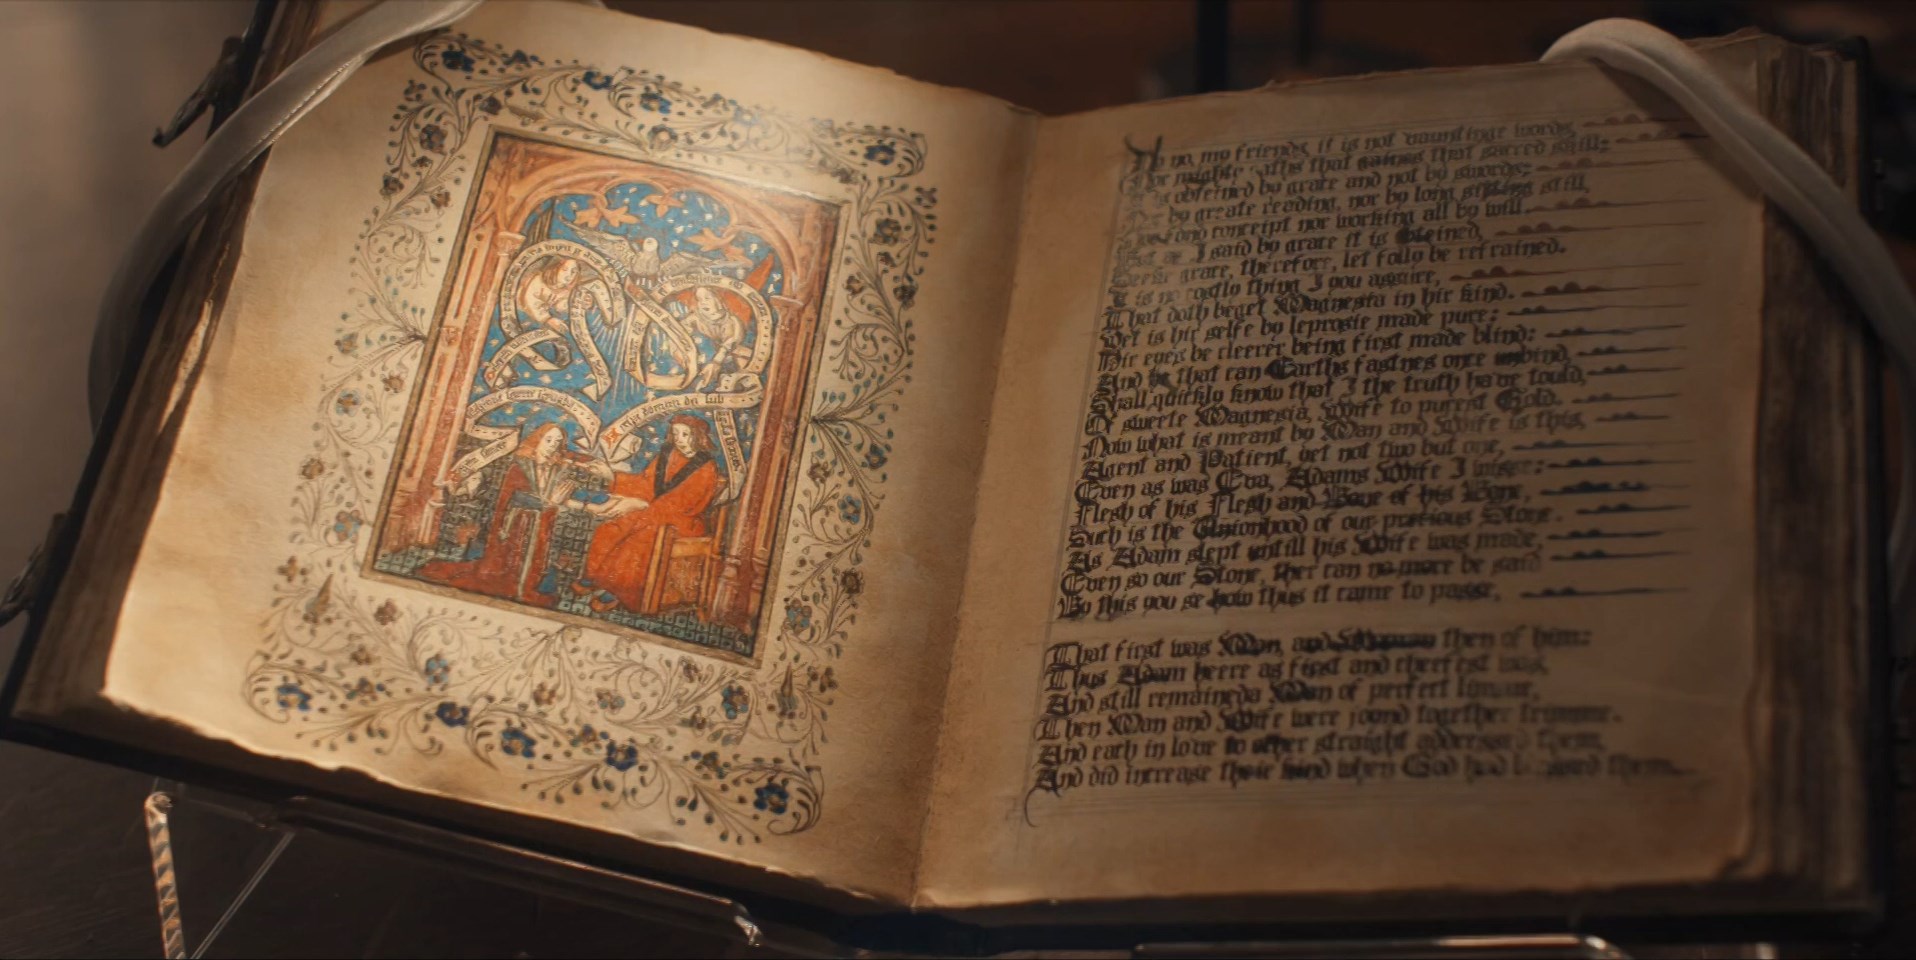 no, my friends, it is not vauntinge words,
mighte oaths that gaines that sacred skill:
is obteined by grace and not by swords;
by greate reading, nor by long sitting still,
fond conceipt nor working all by will.
I said by grace it is obteined,
grace, therefore, let folly be refrained.
It is no costly thing I you assure,
That doth beget Magnesia in hir kind.
Yet is hir selfe by leprosie made pure:
Hir eyes be cleerer being first made blind:
And he that can Earths fastnes once unbind,
Shall quickly know that I the truth have tould,
Of sweete Magnesia, Wife to purest Gold.
Now what is meant by Man and Wife is this,
Agent and Patient, yet not two but one,
Even as was Eva, Adams Wife I wisse:
Flesh of his Flesh and Bone of his Bone,
Such is the Unionhood of our precious Stone.
As Adam slept untill his Wife was made,
Even so our Stone, ther can no more be said
By this you se how thus it came to passe,
That first was Man, and Woman then of him:
Thus Adam heere as first and cheefest was,
And still remaineda Man of perfect limme,
Then Man and Wife were joynd together trimme.
And each in love to other straight addressed them
And did increase their kind when God had blessed them